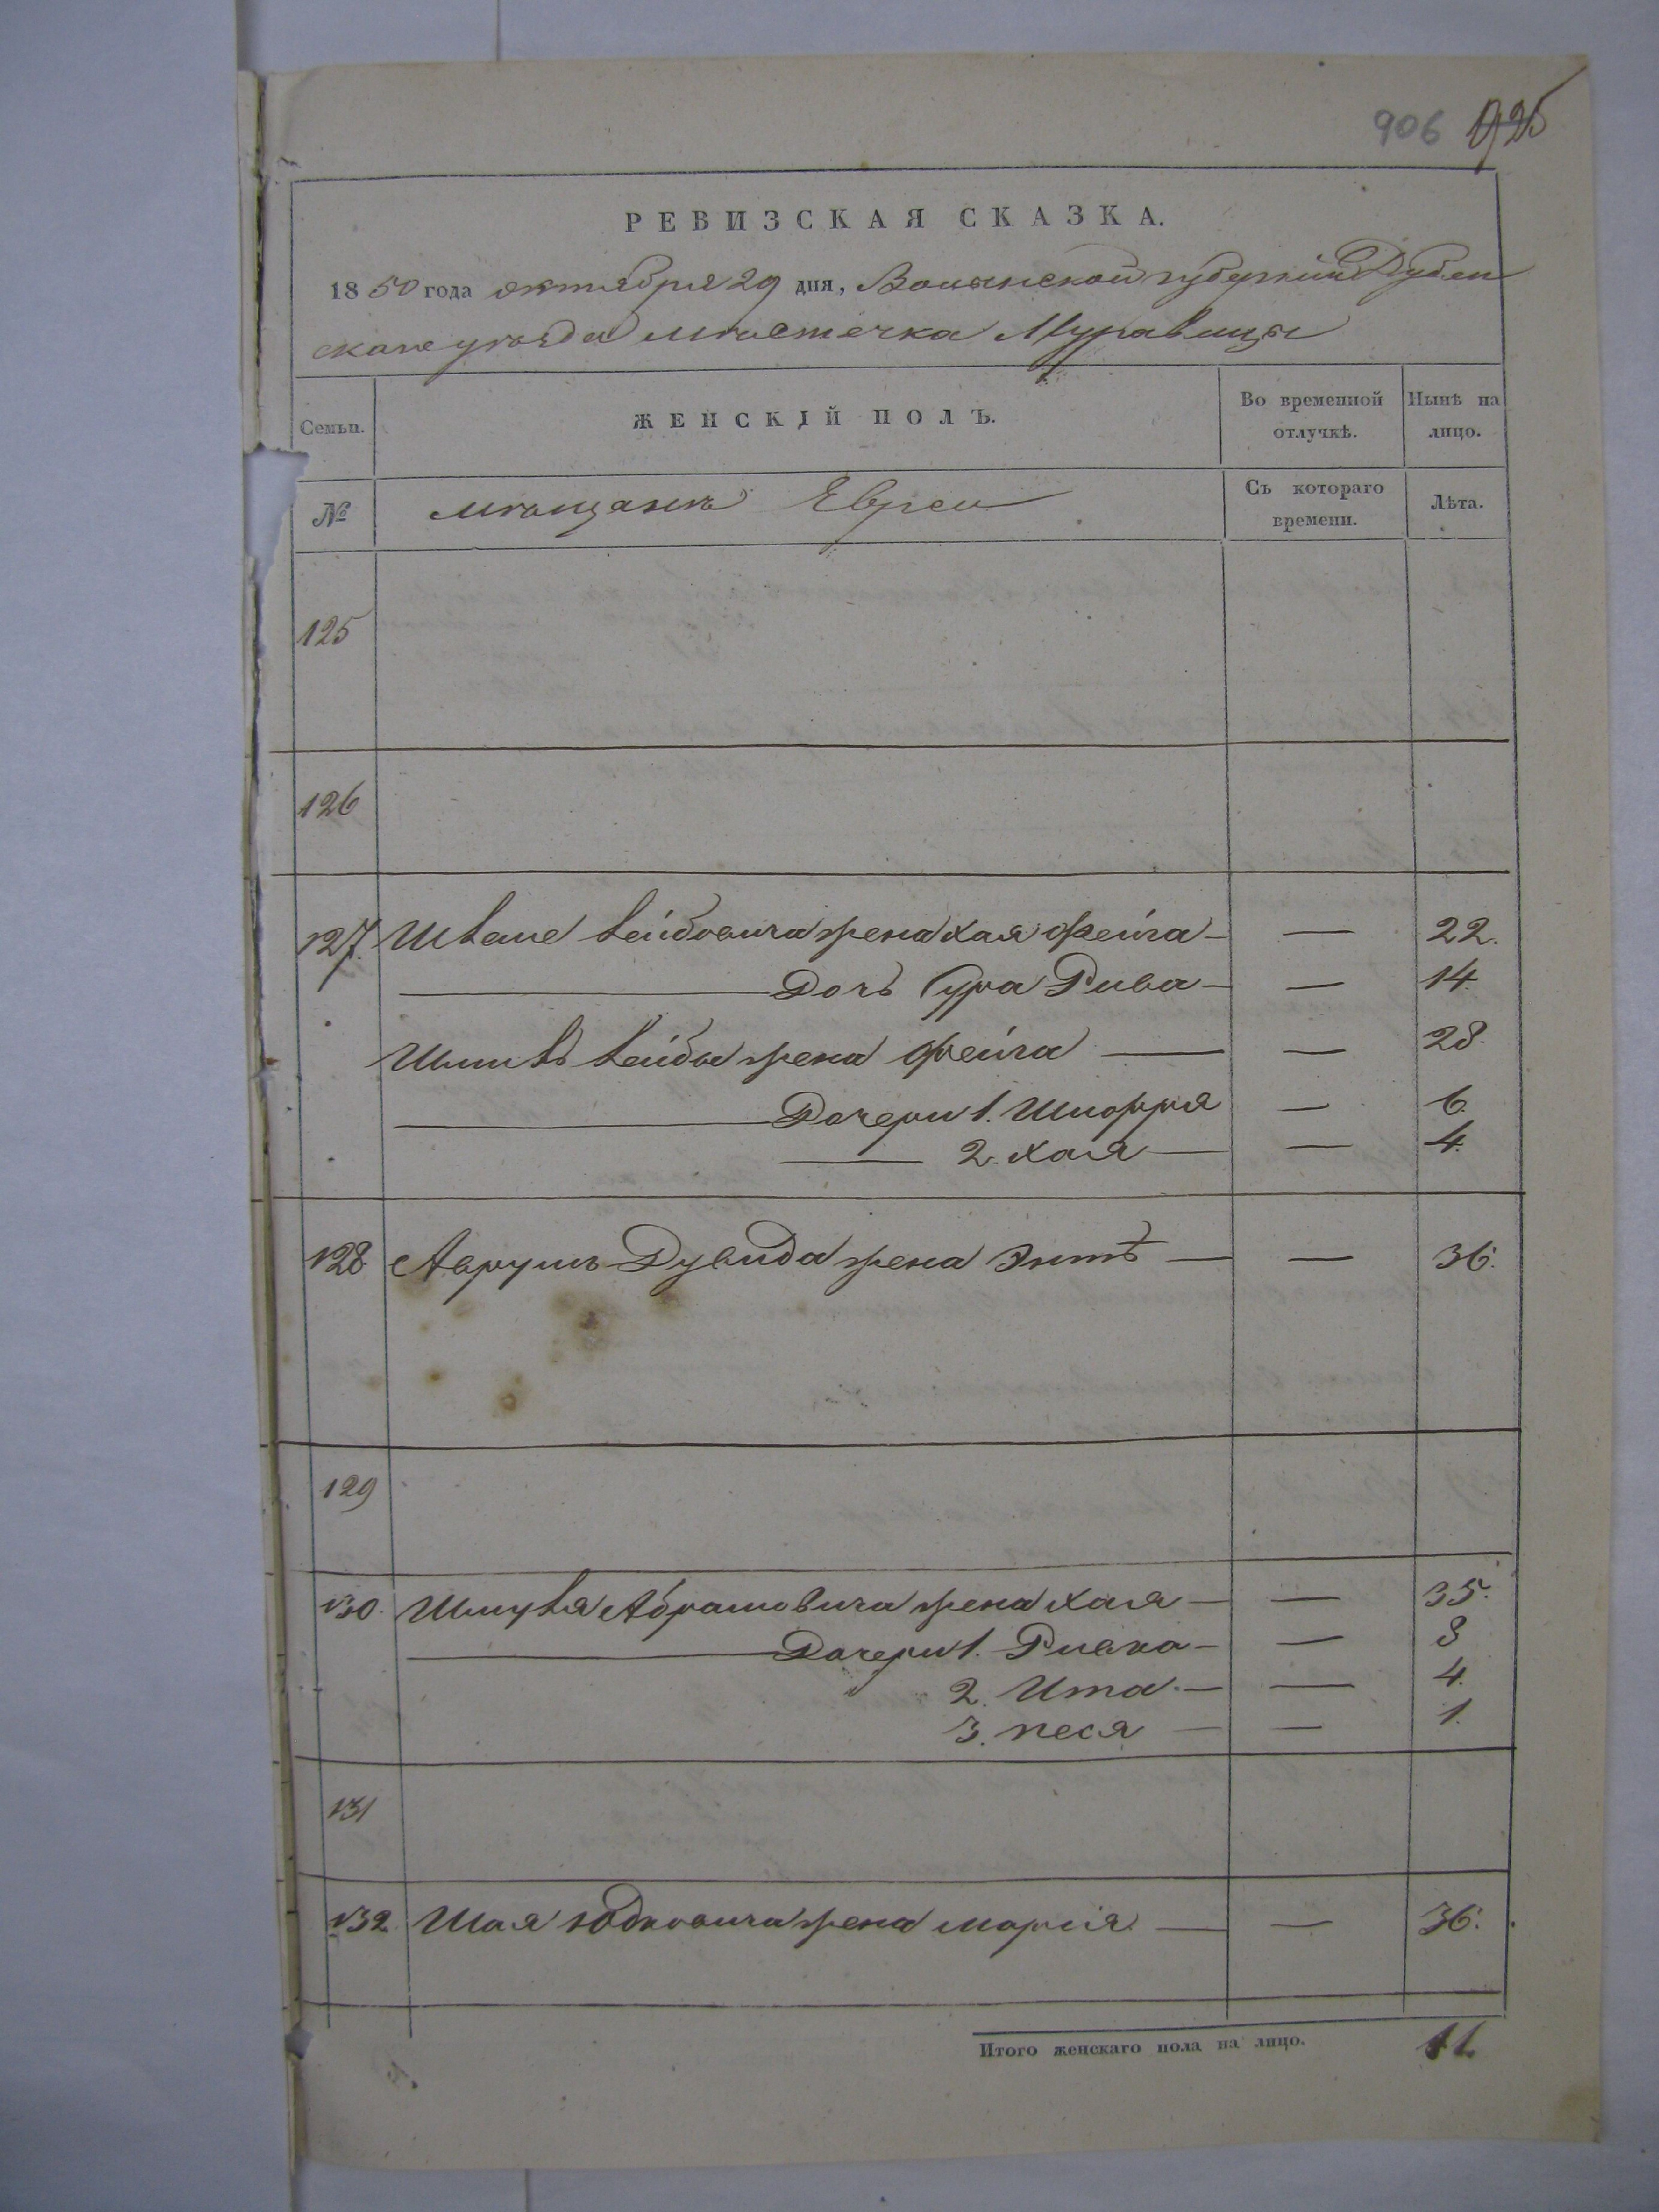 906 925
РЕВИЗСКАЯ СКАЗКА.
1850 года октября 29 дня, Волынской губернии Дубен
скаго уезда местечка Муравицы
Семьи. ЖЕНСКІЙ ПОЛЪ. Во временной отлучкѣ. Нынѣ на лицо.
№ мещане Евреи Съ котораго времени. Лѣта.
125
126
127. Лейбовича жена Хая Фейга — — 22.
— Дочь Сура Рива — — 14
Лейбы жена Фейга — — 28
— Дочери 1. — 6.
— 2. Хая — — 4.
128 Аврумъ Дувида жена Энтѣ — — 36.
129
130. Шмуля Абрамовича жена Хая — — 35.
— Дочери 1. Ривка — — 8
2. Ита — — 4.
3. Песя — — 1.
131
132. Шая Юдковича жена Марія — — 36.
Итого женскаго пола на лицо. 11.